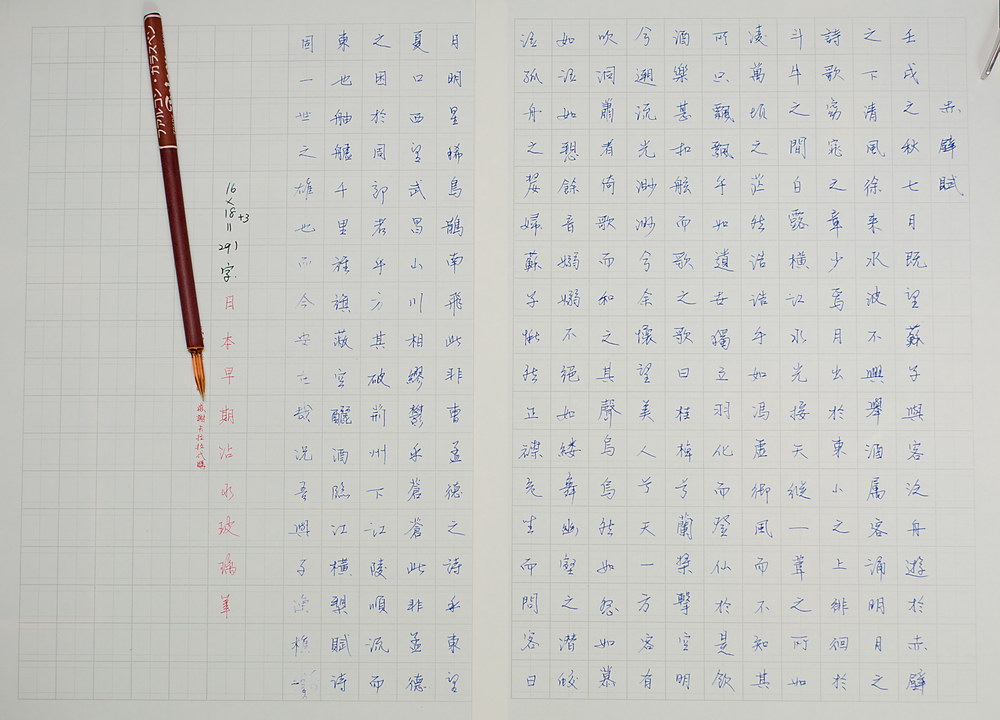 赤壁賦
壬戌之秋七月既望蘇子與客泛舟遊於赤壁
之下清風徐來水波不興舉酒屬客誦明月之
詩歌窈窕之章少焉月出於東山之上徘徊於
斗牛之間白露橫江水光接天縱一葦之所如
凌萬頃之茫然浩浩乎如馮虛御風而不知其
所止飄飄乎如遺世獨立羽化而登仙於是飲
酒樂甚扣舷而歌之歌曰桂棹兮蘭槳擊空明
兮遡流光渺渺兮余懷望美人兮天一方客有
吹洞簫者倚歌而和之其聲烏烏然如怨如慕
如泣如愬餘音嫋嫋不絕如縷舞幽壑之潛蛟
泣孤舟之嫠婦蘇子愀然正襟危坐而問客曰
月明星稀烏鵲南飛此非曹孟德之詩乎東望
夏口西望武昌山川相繆鬱乎蒼蒼此非孟德
之困於周郎者乎方其破荊州下江陵順流而
東也舳艫千里旌旗蔽空釃酒臨江橫槊賦詩
固一世之雄也而今安在哉況吾與子漁樵
16×18+3=291字
日本早期沾水玻璃筆
ファルコン・ガラスペン